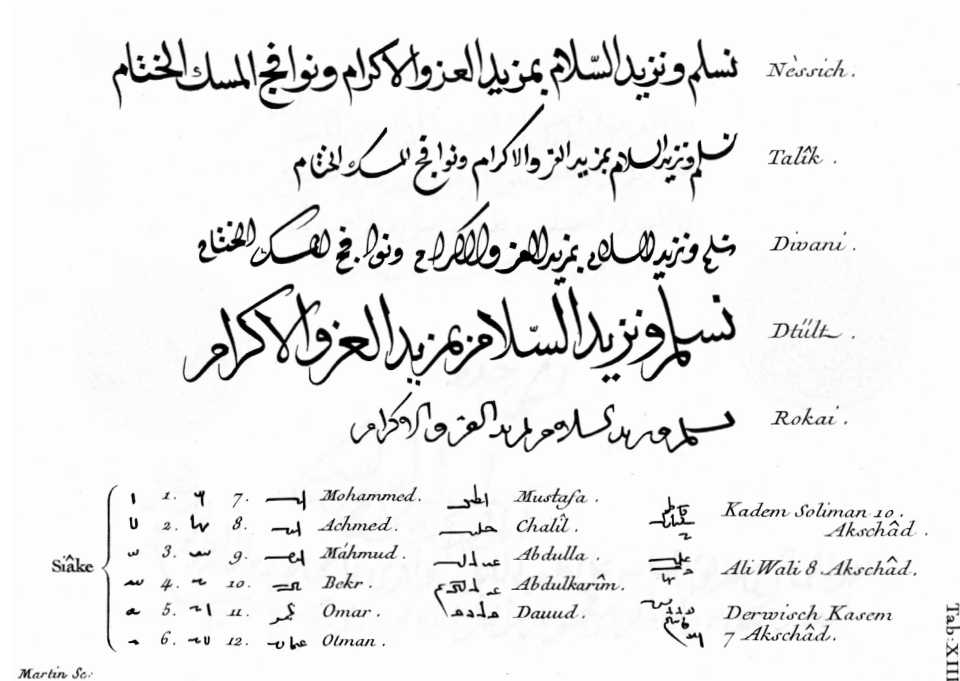 نسلم ونزيد السّلام بمزيد العز والاكرام ونوافج المسك الختام Nèssich.
نسلم ونزيد السلام بمزيد العز والاكرام ونوافج المسك الختام Talîk.
نسلم ونزيد السلام بمزيد العز والاكرام ونوافج المسك الختام Divani.
نسلم ونزيد السّلام بمزيد العز والاكرام Dtült.
نسلم ونزيد السلام بمزيد العز والاكرام Rokai.
Siâke
1. 7. Mohammed. Mustafa. Kadem Soliman 10.
2. 8. Achmed. Chalîl. Akschâd.
3. 9. Máhmud. Abdulla. Ali Wali 8 Akschâd.
4. 10. Bekr. Abdulkarîm.
5. 11. Omar. Dauud. Derwisch Kasem
6. 12. Otman. 7 Akschâd.
Martin Sc:
Tab: XIII